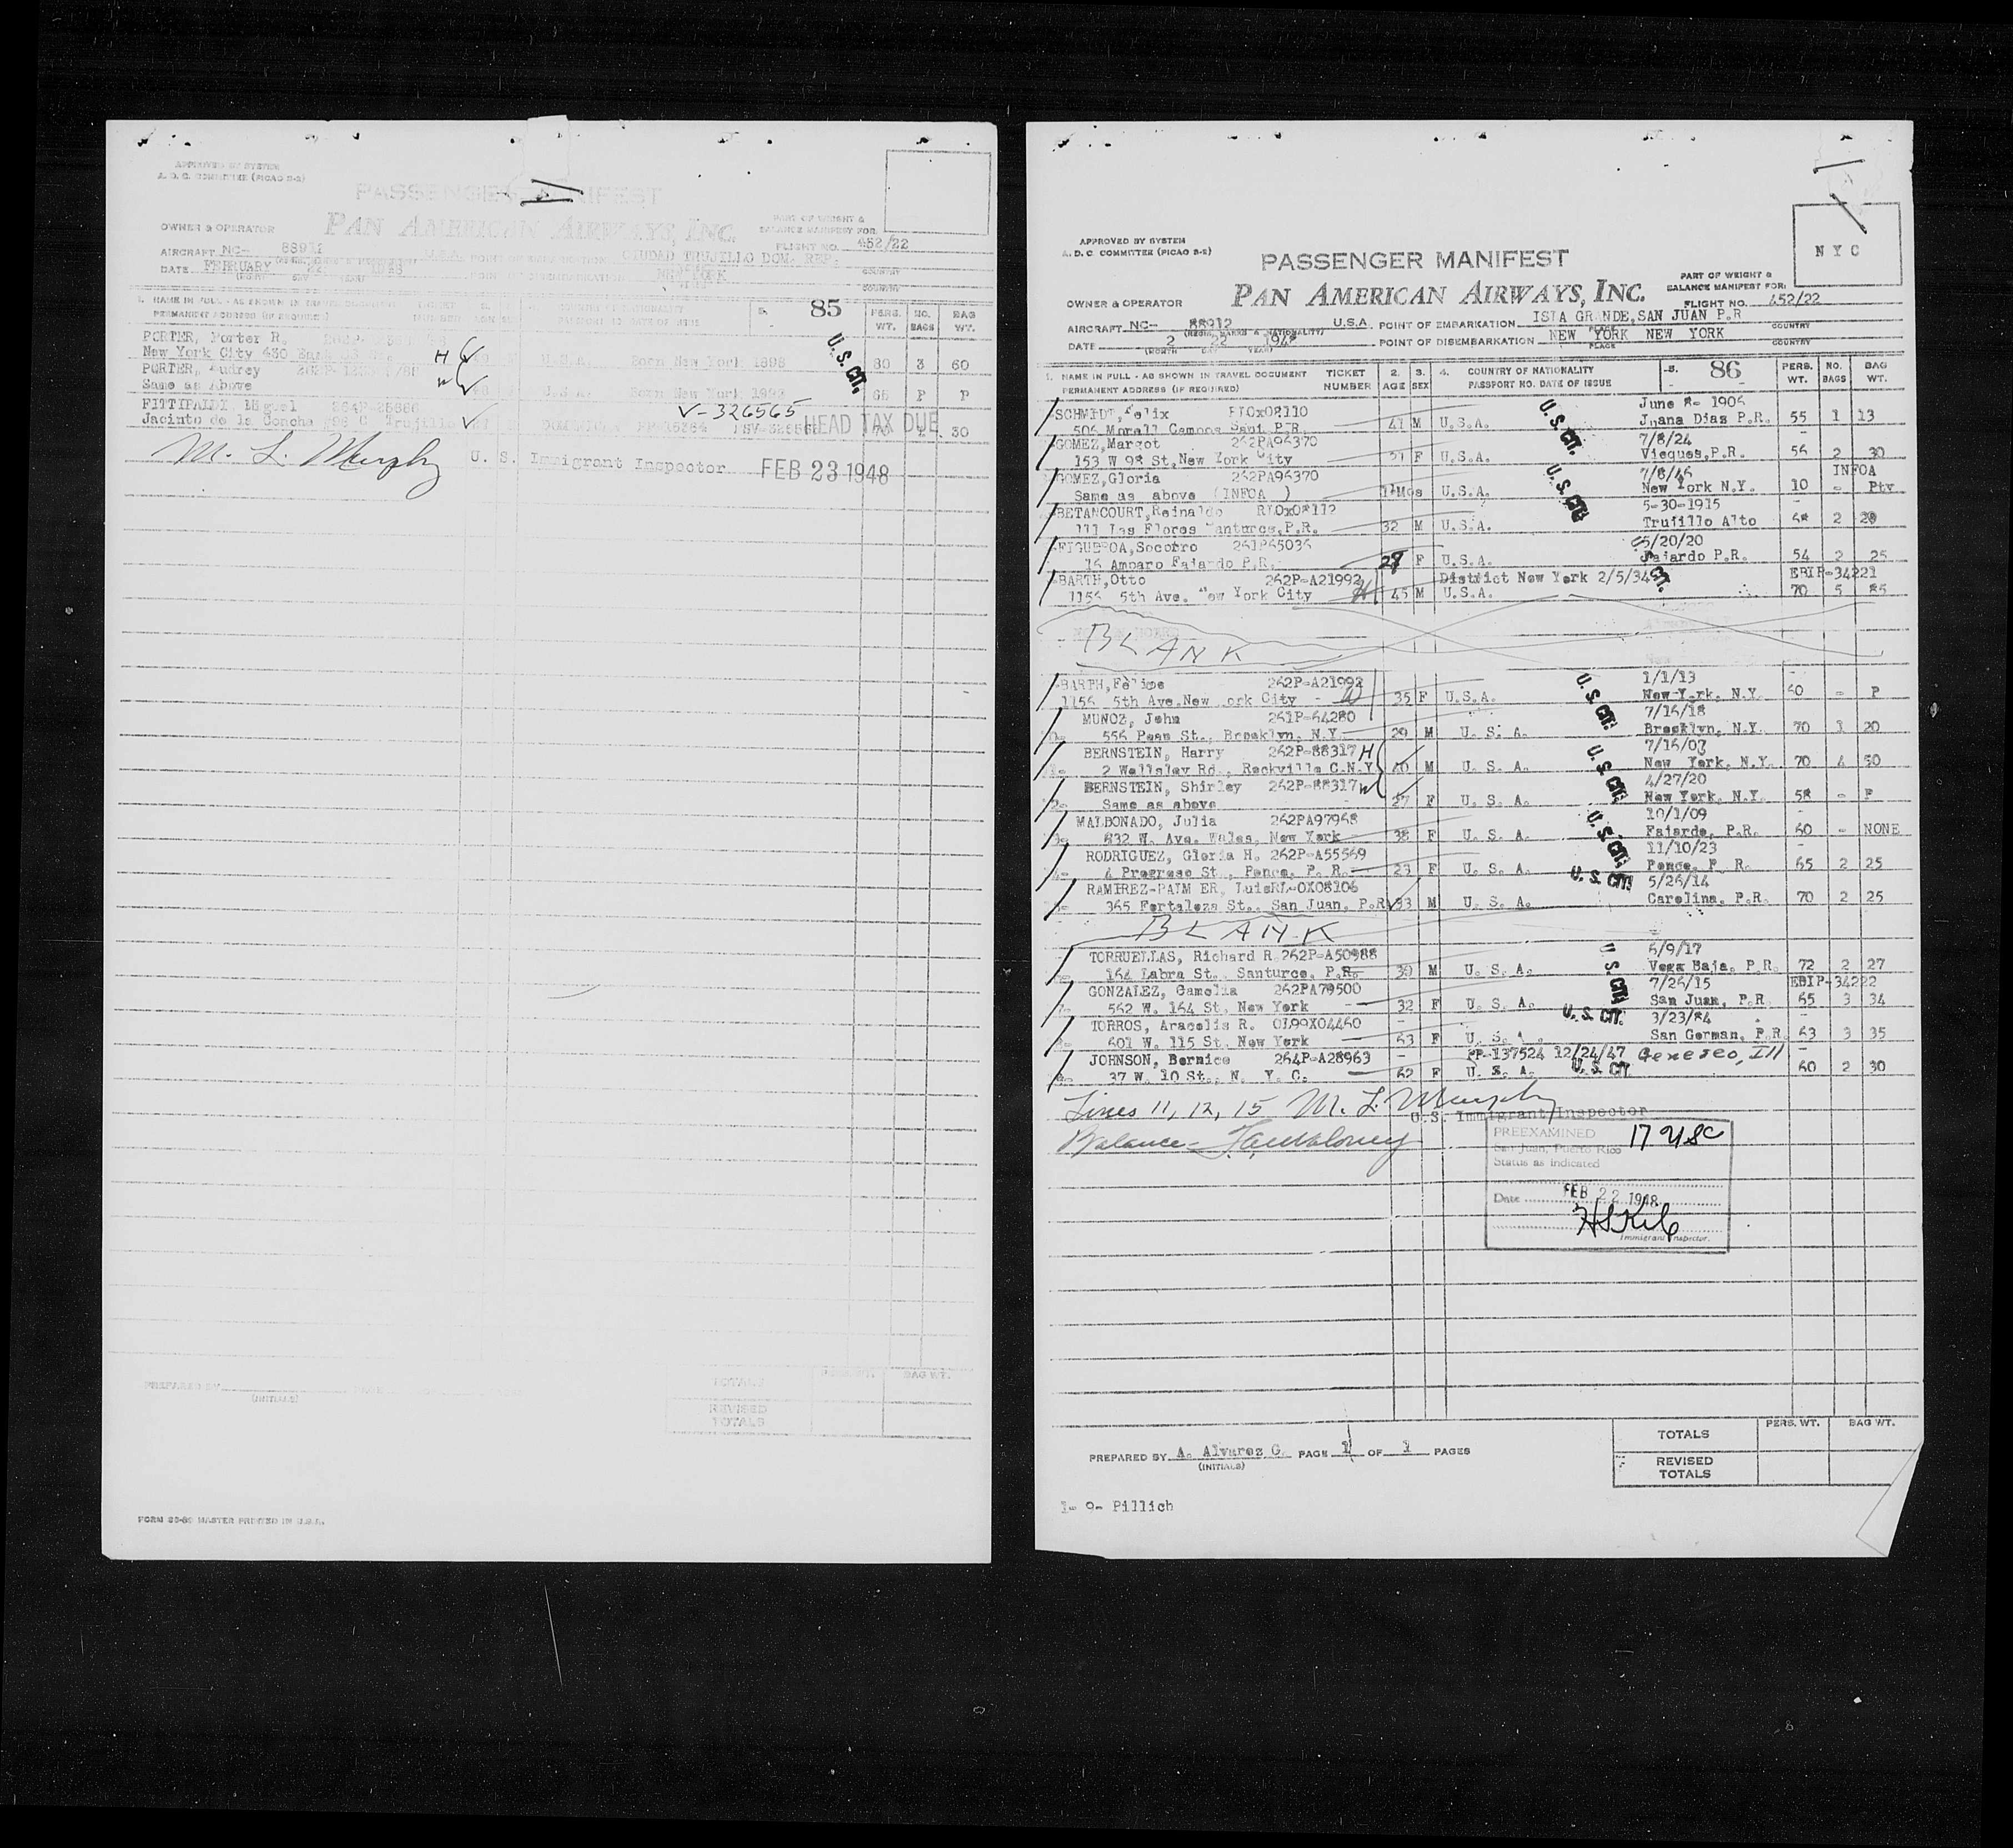 APPROVED BY SYSTEM
A. D. C. COMMITTEE (PICAO S-2)
PASSENGER MANIFEST
PAN AMERICAN AIRWAYS, INC.
PART OF WEIGHT &
BALANCE MANIFEST FOR
OWNER & OPERATOR
FLIGHT NO. 452/22
AIRCRAFT NC- 88912 U.S.A. POINT OF EMBARKATION CIUDAD TRUJILLO DOM. REP.
DATE FEBRUARY 22 1948 NEW YORK
COUNTRY
COUNTRY
1. NAME IN FULL - AS SHOWN IN TRAVEL DOCUMENT
PERMANENT ADDRESS (IF REQUIRED)
5. 85 PERS. WT. NO. BAGS BAG WT.
PORTER, Porter R.
New York City 430 H U.S.A. Born New York 1898 U. S. CIT. 80 3 60
PORTER, Audrey
Same as Above W U.S.A. Born New York P P
FITTIPALDI, Miguel 264P V-326565
Jacinto de la Concha C. Trujillo HEAD TAX DUE 30
M. L. Murphy U. S. Immigrant Inspector FEB 23 1948
PREPARED BY
(INITIALS)
TOTALS
BAG WT.
REVISED
TOTALS
FORM MASTER PRINTED IN U.S.A.
NYC
APPROVED BY SYSTEM
A. D. C. COMMITTEE (PICAO S-2)
PASSENGER MANIFEST
PART OF WEIGHT &
BALANCE MANIFEST FOR:
PAN AMERICAN AIRWAYS, INC.
OWNER & OPERATOR
FLIGHT NO. 452/22
AIRCRAFT NC- 88912 U.S.A. POINT OF EMBARKATION ISLA GRANDE, SAN JUAN P.R
(REGIS. MARKS & NATIONALITY) PLACE COUNTRY
DATE 2 22 1948 POINT OF DISEMBARKATION NEW YORK NEW YORK
(MONTH DAY YEAR) PLACE COUNTRY
1. NAME IN FULL - AS SHOWN IN TRAVEL DOCUMENT TICKET 2. 3. 4. COUNTRY OF NATIONALITY 5. 86 PERS. NO. BAG
PERMANENT ADDRESS (IF REQUIRED) NUMBER AGE SEX PASSPORT NO. DATE OF ISSUE WT. BAGS WT.
SCHMIDT, Felix June 8- 1906
506 Morell Campos Sant P.R. 41 M U.S.A. U. S. CIT. Juana Diaz P.R. 55 1 13
GOMEZ, Margot 262PA96370 7/8/24
153 W 98 St, New York City F U.S.A. Vieques, P.R. 56 2 30
GOMEZ, Gloria 262PA96370 7/8/46 INFOA
Same as above (INFOA ) Mos U.S.A. U. S. CIT. New York N.Y. 10 - Ptv
BETANCOURT, Reinaldo 5-30-1915
111 Las Flores Santurce, P.R. 32 M U.S.A. Trujillo Alto 2
FIGUEROA, Socorro 261P65036 5/20/20
16 Amparo Fajardo P.R. F U.S.A. Fajardo P.R. 54 2 25
BARTH, Otto 262P-A21992 District New York 2/5/34 EBIP-34221
1156 5th Ave. New York City H 45 M U.S.A. 70 5 85
BLANK
BARTH, Felime 262P-A21992 1/1/13
1156 5th Ave. New ork City W 35 F U.S.A. U. S. CIT. New York, N.Y. 60 - P
MUNOZ, John 261P-64280 7/16/18
556 Penn St., Brooklyn, N.Y. 29 M U. S. A. Brooklyn, N.Y. 70 1 20
BERNSTEIN, Harry 262P-88317 H 7/16/07
2 Wellsley Rd., Rockville C.N.Y 40 M U. S. A. U. S. CIT. New York, N.Y. 70 4 50
BERNSTEIN, Shirley 262P-88317 W 4/27/20
Same as above 27 F U. S. A. New York, N.Y. 58 - P
MALDONADO, Julia 262PA97968 10/1/09
832 W. Ave. Wales, New York 38 F U. S. A. U. S. CIT. Fajardo, P.R. 60 - NONE
RODRIGUEZ, Gloria H. 262P-A55569 11/10/23
4 Progreso St., Ponce, P. R. 23 F U. S. A. Ponce, P. R. 65 2 25
RAMIREZ-PALM ER, Luis RL-OX08106 U. S. CIT. 5/26/14
365 Fortaleza St., San Juan, P.R 33 M U. S. A. Carolina, P.R. 70 2 25
BLANK
TORRUELLAS, Richard R. 262P-A50988 6/9/17
164 Labra St., Santurce, P.R. 30 M U. S. A. U S CIT. Vega Baja, P.R. 72 2 27
GONZALEZ, Gamelia 262PA79500 7/26/15 EBIP-34222
562 W. 164 St, New York 32 F U. S. A. San Juan, P.R 65 3 34
TORROS, Aracelis R. 0199X04460 U. S. CIT. 3/23/84
601 W. 115 St, New York 63 F U. S. A. San German, P.R 63 3 35
JOHNSON, Bernice 264P-A28963 PP-137524 12/24/47 Geneseo, Ill
37 W. 10 St., N. Y. C. 62 F U. S. A. U. S. CIT. 60 2 30
Lines 11, 12, 15 M. L. Murphy
U.S. Immigrant Inspector
Balance-
PREEXAMINED 17 USC
San Juan, Puerto Rico
Status as indicated
Date FEB 22 1948
Immigrant Inspector.
PERS. WT. BAG WT.
TOTALS
PREPARED BY A. Alvarez G. PAGE 1 OF 1 PAGES
(INITIALS)
REVISED
TOTALS
1- 9- Pillich